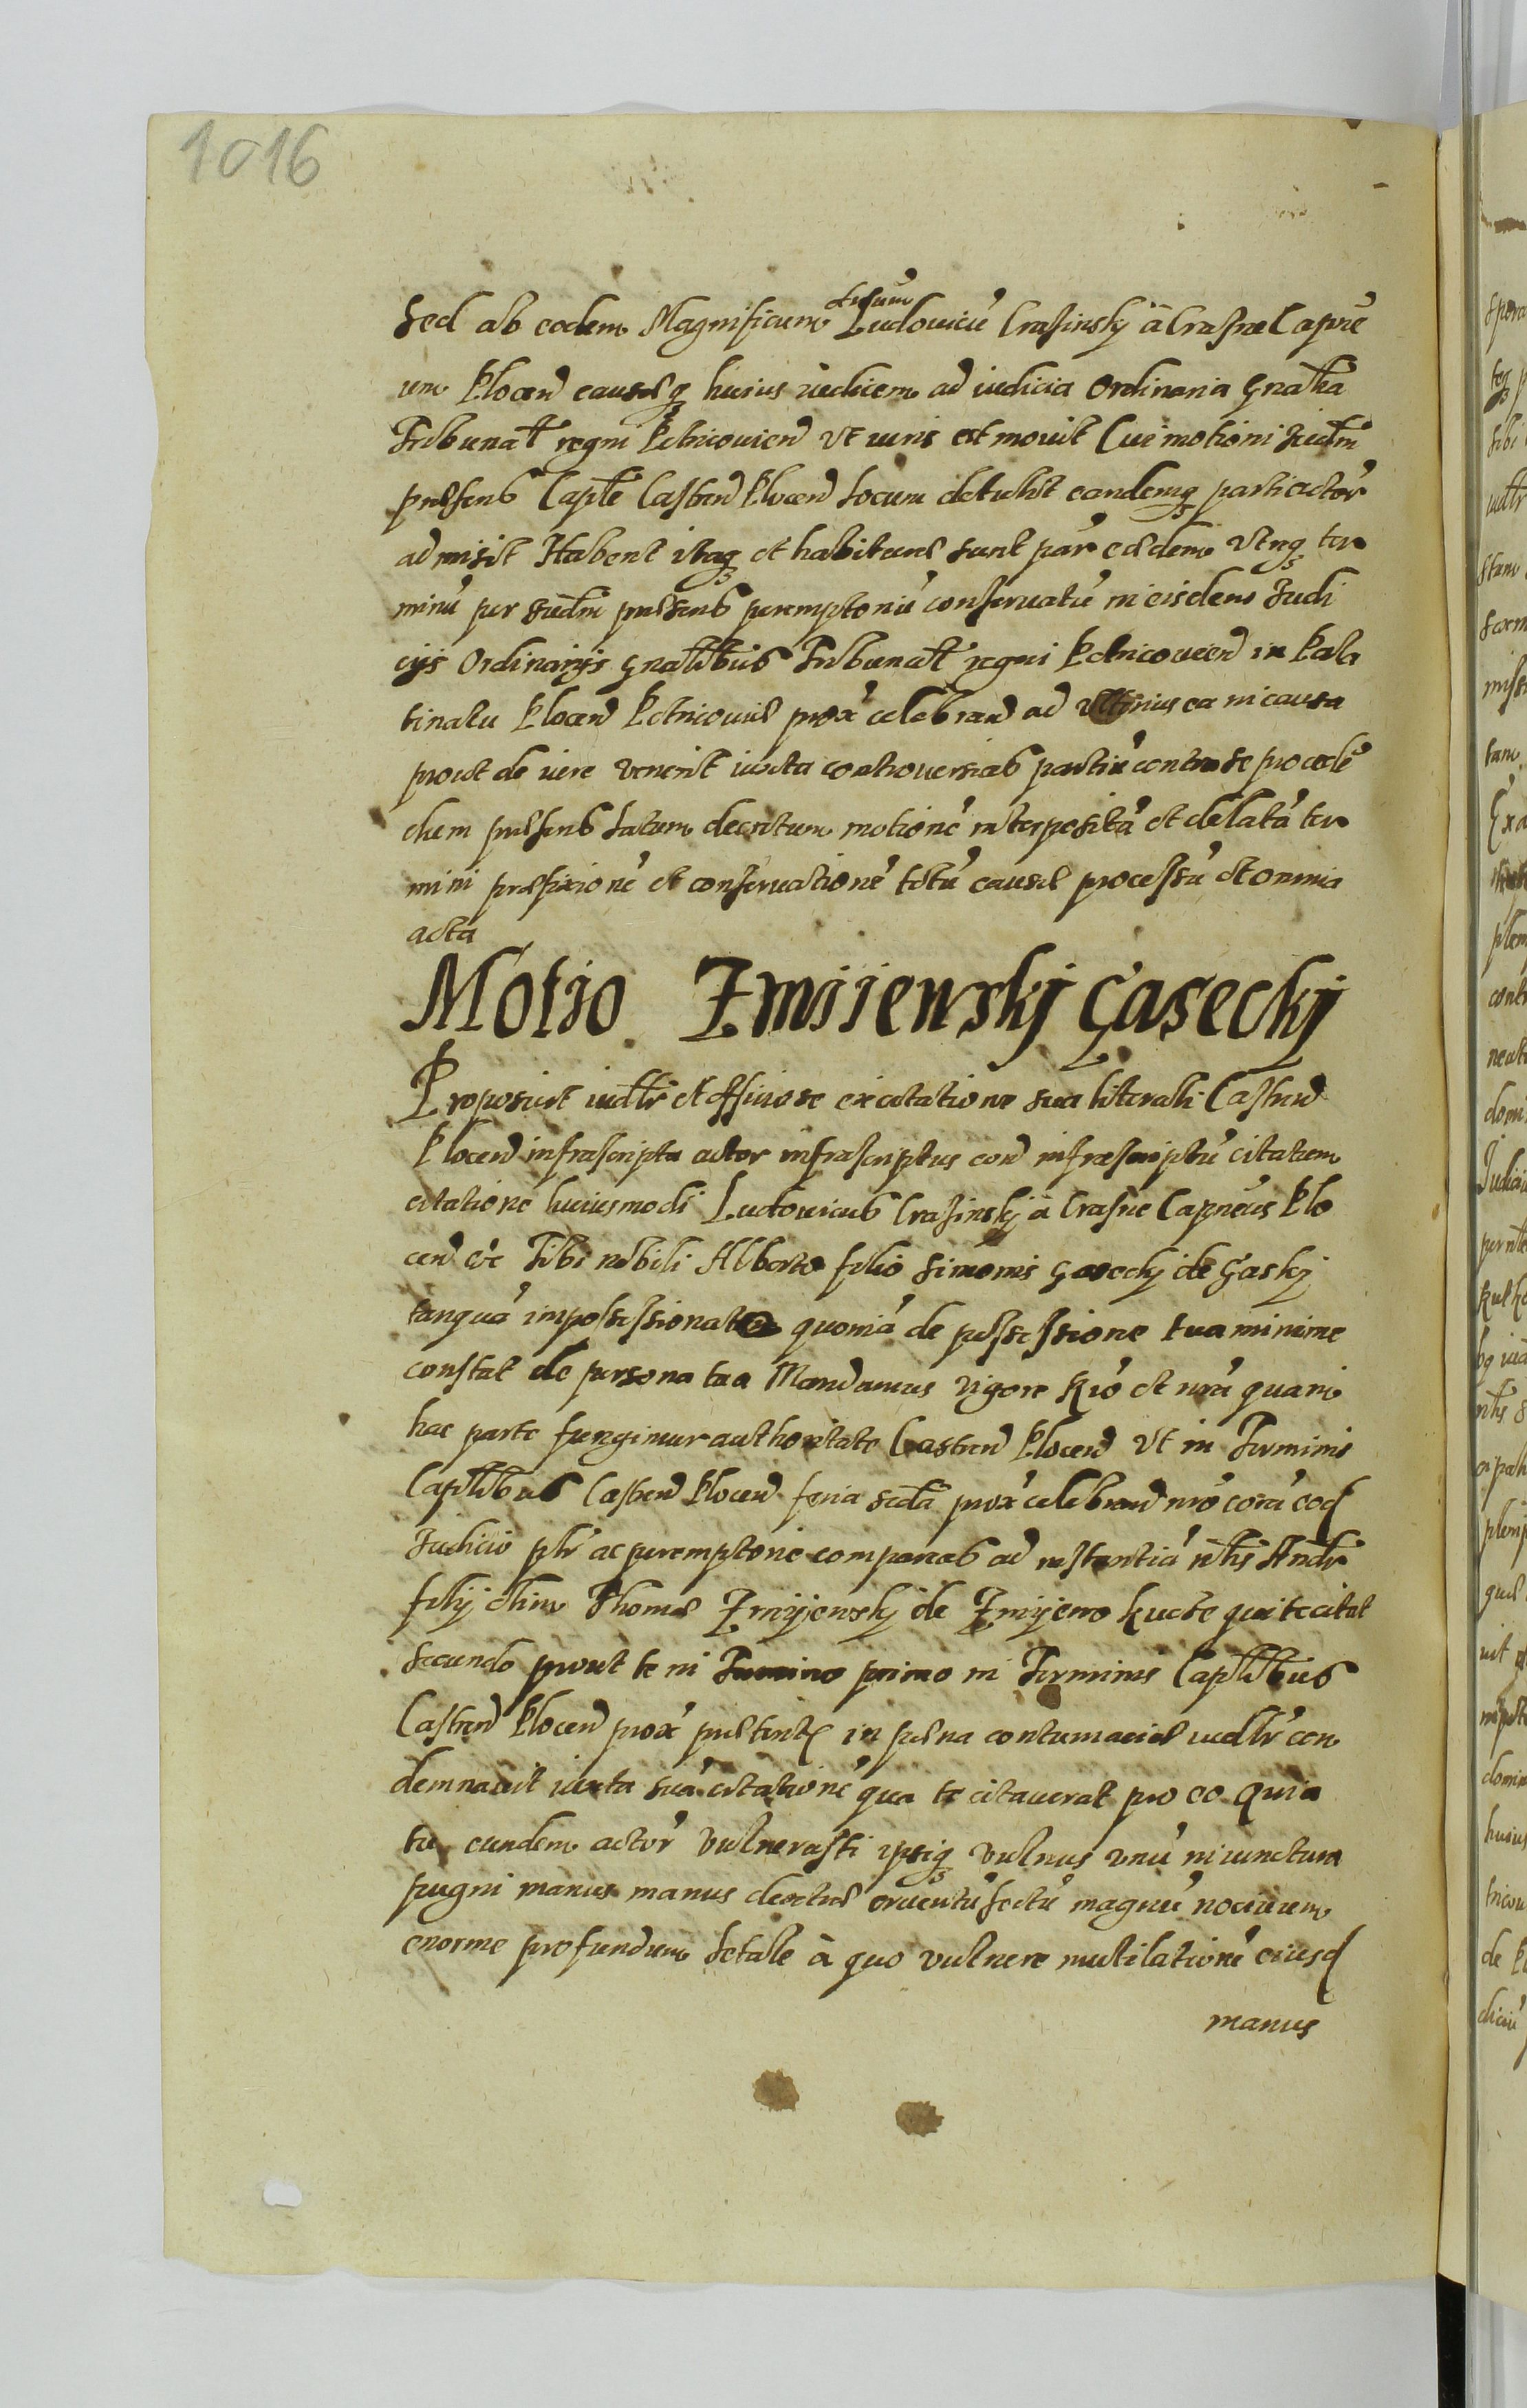 1016
dictum
Sed ab eodem Magnificum Ludouicũ Crasinsky à Crasne Capne
um Plocen causæq huius iudicem ad iudicia Ordinaria Gnalia
Tribunal regni Petricouien vt iuris est mouit Cui motioni Iudm
præsens Caple Castren Plocen locum detulit eandemq parti actor
admisit Habent itaq et habituræ sunt par eædem vtraq ter
minũ per Iudm præsens peremptoriũ conseruatũ in eisdem Iudi
cijs Ordinarijs Gnalibus Tribunal regni Petricouien in Pala
tinatu Plocen Petricouiæ prox celebran ad vlterius ea in causa
prout de iure venerit iuxta controuersias partiũ contra se procede
dum præsens latum decretum motionẽ interpositã et delatã ter
mini præfixionẽ et conseruationẽ totũ causæ processũ et omnia
acta
Motio Zmijewskj Gaseckj
Proposuit iudlr et officiose ex citatione sua literali Castren
Plocen infrascripta actor infrascriptus con infrascriptũ citatum
citatione huiusmodi Ludouicus Crasinskj à Crasne Capneus Plo
cen etc Tibi nobili Alberto filio Simonis Gaseckj de Gaskj
tanquã impossessionato quoniã de possessione tua minime
constat de persona tua Mandamus vigore Rio et nrã qua in
hac parte fungimur authoritate Castren Plocen Vt in Terminis
Caplibus Castren Plocen feria scda prox celebran nrõ corã eod
Iudicio plr ac peremptorie compareas ad instantiã nblis Andr
filij olim Thomæ Zmijewskj de Zmijewo Kucze qui te citat
secundo prout te in Termino primo in Terminis Caplibus
Castren Plocen prox præterit in pæna contumaciæ iudlr con
demnauit iuxta suã citationẽ qua te citauerat pro eo Quia
tu eundem actor vulnerasti ipsiq vulnus vnũ in iunctura
pugni manus manus dextræ cruentũ sectũ magnũ nociuum
enorme profundum letale à quo vulnere mutilationẽ eiusd
manus